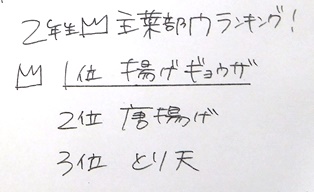 2年生 主菜部門ランキング!
1位 揚げギョウザ
2位 唐揚げ
3位 とり天